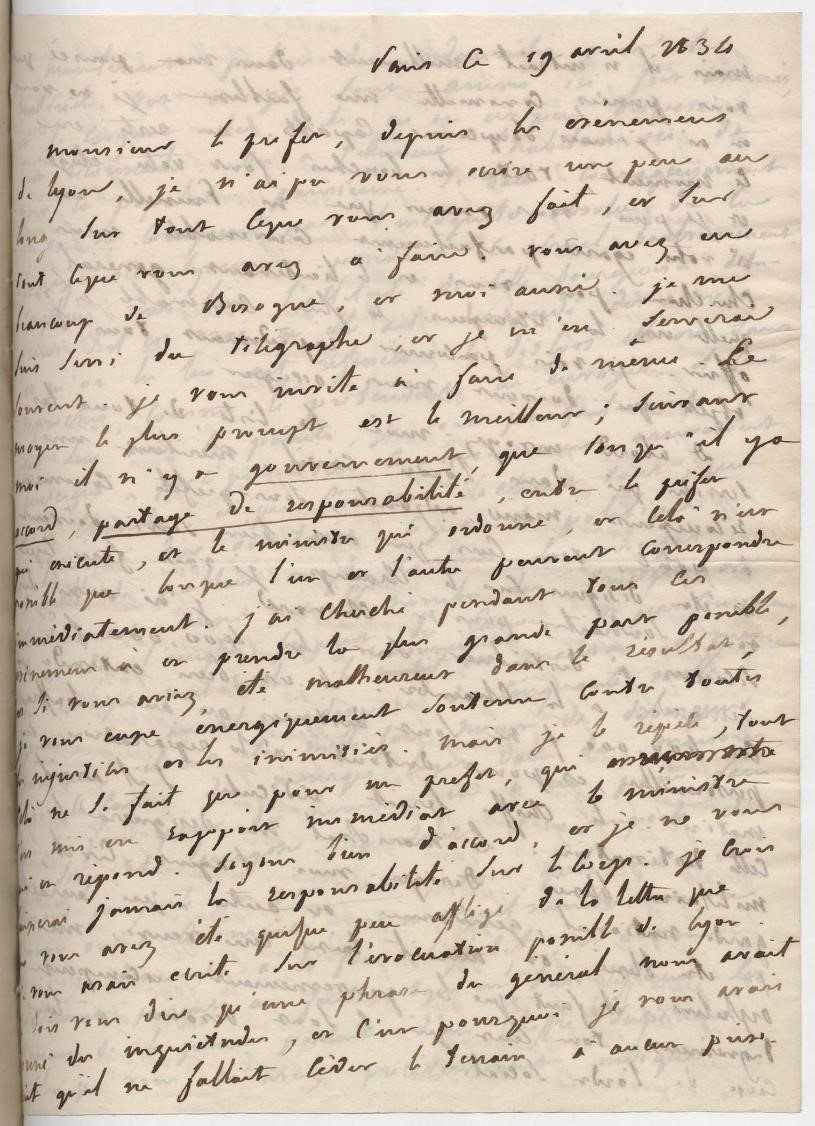 Paris le 19 avril 1834
monsieur le prefet, depuis les evénemens
de lyon, je n'ai pu vous ecrire un peu au
long sur tout ceque vous avez fait, et sur
tout ceque vous avez à faire. vous avez eu
beaucoup de Besogne, et moi aussi. je me
suis servi du télégraphe, et je m'en servirai
souvent. je vous invite à faire de même. Le
moyen le plus prompt est le meilleur; suivant
moi il n'y a gouvernement, que lorsqu'il y a
accord, partage de responsabilité, entre le prefet
qui exécute, et le ministre qui ordonne, et celà n'est
possible que lorsque l'un et l'autre peuvent correspondre
immédiatement. j'ai cherché pendant tous ces
evénemens à en prendre la plus grande part possible,
et si vous aviez été malheureux dans le résultat,
je vous eusse energiquement soutenu contre toutes
les injustices et les inimitiés. mais je le répète, tout
celà ne se fait que pour un prefet, qui
s'est mis en rapport immédiat avec le ministre
qui en répond. Soyons bien d'accord, et je ne vous
laisserai jamais la responsabilité sur le corps. je crois
que vous avez été quelque peu affligé de la lettre que
je vous avais ecrite sur l'évacuation possible de lyon.
je dois vous dire qu'une phrase du général nous avait
donné des inquiétudes, et c'est pourquoi je vous avais
dit qu'il ne fallait céder le terrain à aucun prix.